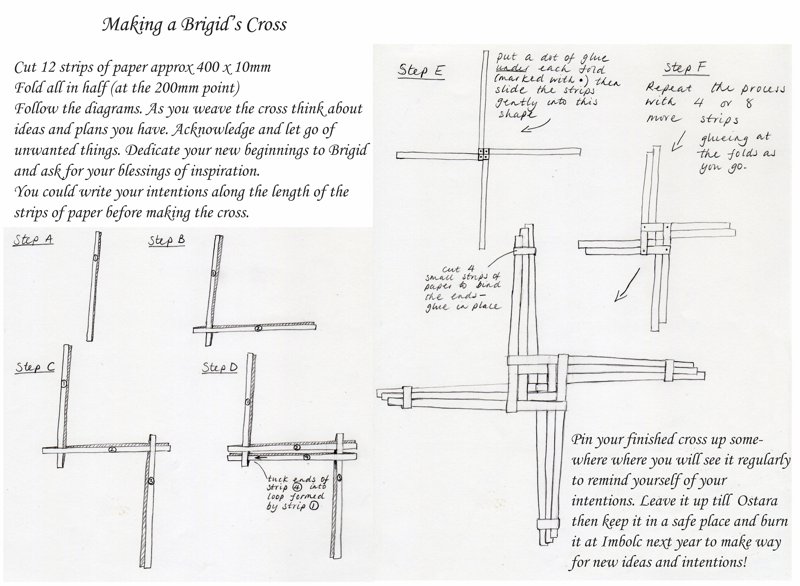 Making a Brigid's Cross
Cut 12 strips of paper approx 400 x 10mm
Fold all in half (at the 200mm point)
Follow the diagrams. As you weave the cross think about
ideas and plans you have. Acknowledge and let go of
unwanted things. Dedicate your new beginnings to Brigid
and ask for your blessings of inspiration.
You could write your intentions along the length of the
strips of paper before making the cross.
Step A
1
Step B
1
2
Step C
1
2
3
Step D
1
2
4
3
tuck ends of
strip ④ into
loop formed
by strip ①
Step E
put a dot of glue
under each fold
(marked with •) then
slide the strips
gently into this
shape
Step F
Repeat the process
with 4 or 8
more strips
glueing at
the folds as
you go.
cut 4
small strips of
paper to bind
the ends-
glue in place
Pin your finished cross up some-
where where you will see it regularly
to remind yourself of your
intentions. Leave it up till Ostara
then keep it in a safe place and burn
it at Imbolc next year to make way
for new ideas and intentions!